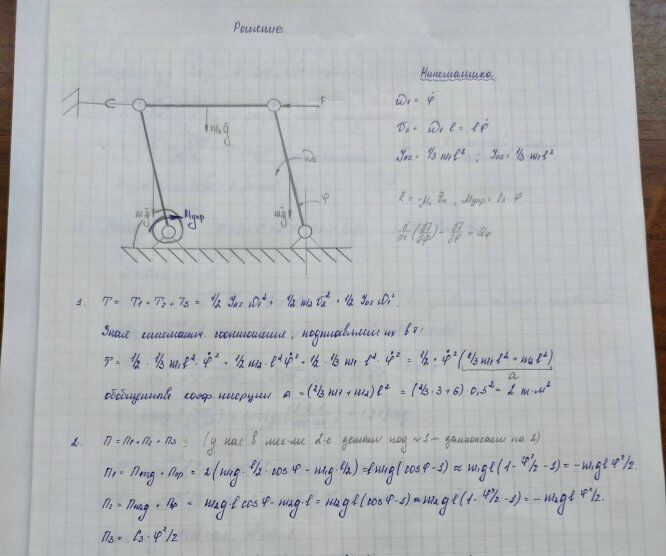 Решение
Кинематика.
ω₁ = φ̇
υ₂ = ω₁ l = lφ̇
F
m₂ḡ
ω₂
φ
m₁ḡ
Mупр
m₁ḡ
Mупр = c₃·φ
d/dt (∂T/∂φ̇) - ∂T/∂φ = Qφ
1. T = T₁ + T₂ + T₃ = 1/2 ω₁² + 1/2 m₂ υ₂² + 1/2 ω₁²,
Зная кинемат. соотношение, подставляем их в T:
T = 1/2 · 1/3 m₁ l² · φ̇² + 1/2 m₂ · l² φ̇² + 1/2 · 1/3 · m₁ · l² · φ̇² = 1/2 · φ̇² (2/3 m₁l² + m₂l²)
a
обобщенный коэф инерции a = (2/3 m₁ + m₂) l² = (2/3 · 3 + 6) · 0,5² = 2 кг·м²
2. П = П₁ + П₂ + П₃ : (у нас в 2-е детали под 1 - домножаем на 2)
П₁ = Пm₁g + Ппр = 2(m₁g · l/2 · cosφ - m₁g · l/2) = l m₁g (cosφ - 1) ≈ m₁gl (1 - φ²/2 - 1) = - m₁glφ²/2.
П₂ = Пm₂g + Ппр = m₂gl cosφ - m₂g·l = m₂gl (cosφ - 1) ≈ m₂gl (1 - φ²/2 - 1) = - m₂gl φ²/2.
П₃ = c₃·φ²/2